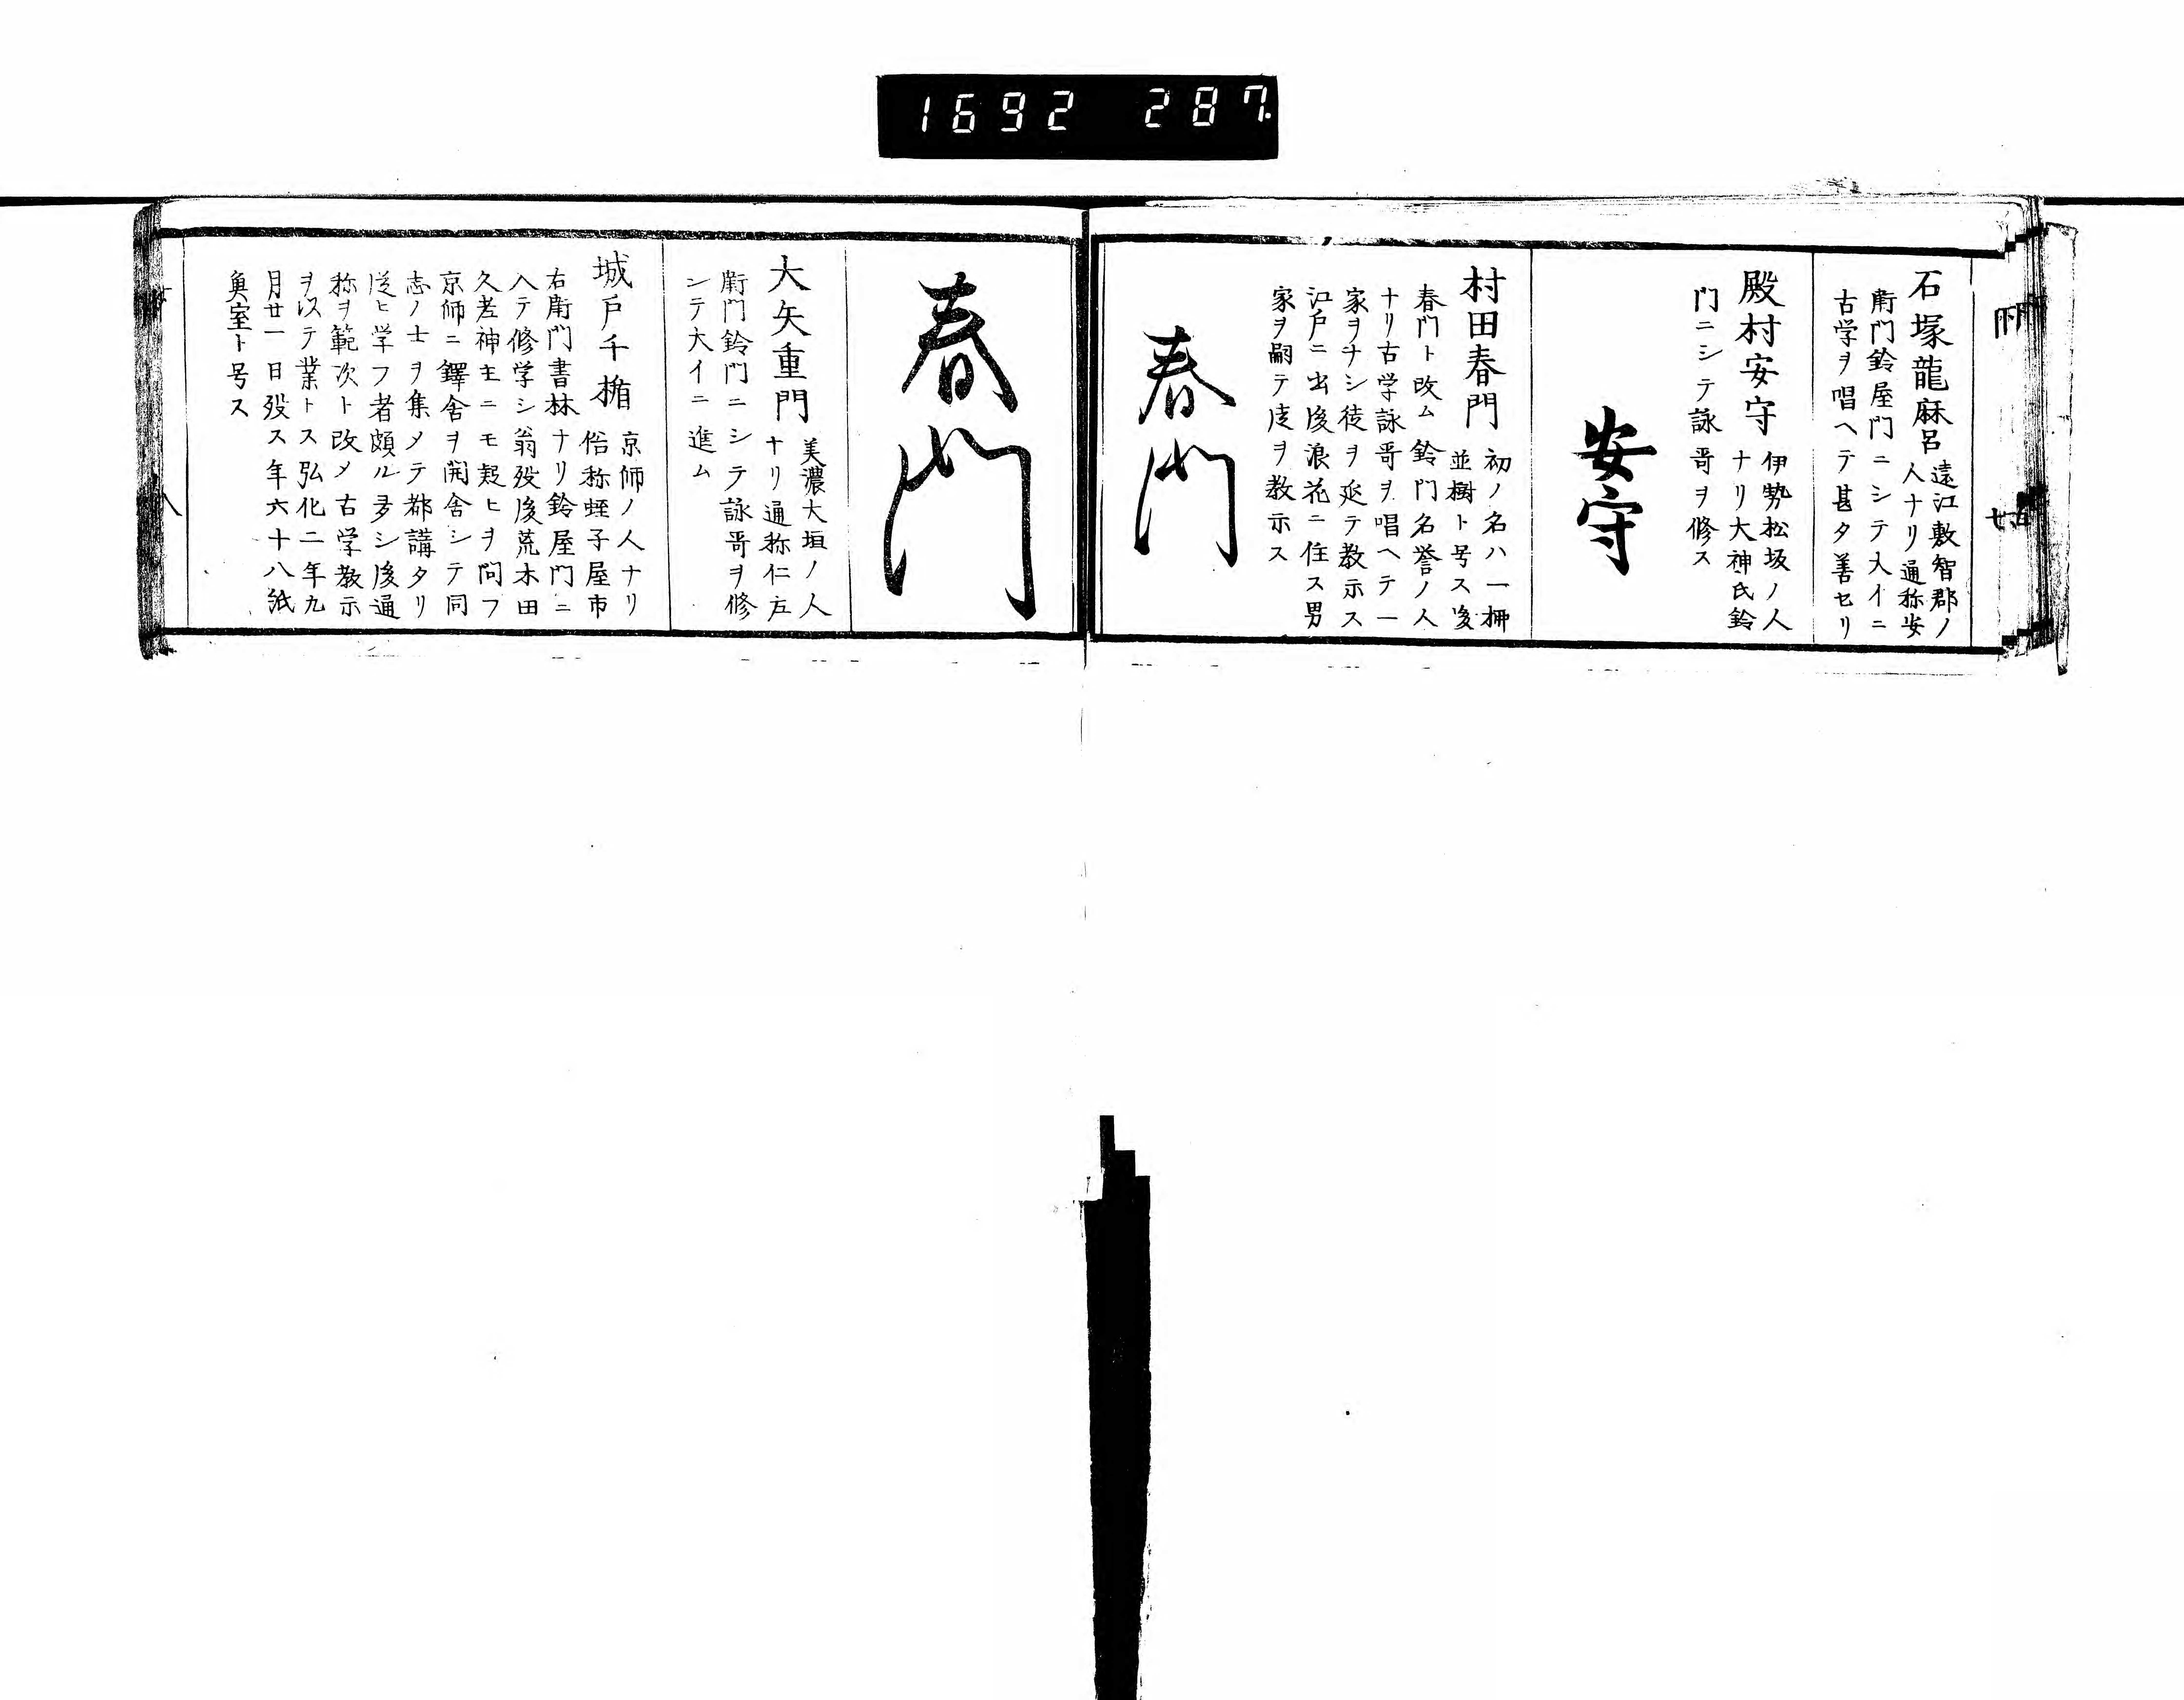 1692 287.
石塚龍麻呂 遠江敷智郡ノ
人ナリ通称安
衛門鈴屋門ニシテ大イニ
古学ヲ唱ヘテ甚タ善セリ
殿村安守 伊勢松坂ノ人
ナリ大神氏鈴
門ニシテ詠哥ヲ修ス
安守
村田春門 初ノ名ハ一柳
並樹ト号ス後
春門ト改ム鈴门名誉ノ人
ナリ古学詠哥ヲ唱ヘテ一
家ヲナシ徒ヲ延テ教示ス
江戸ニ出後浪花ニ住ス男
家ヲ嗣テ徒ヲ教示ス
春門
春門
大矢重門 美濃大垣ノ人
ナリ通称仁左
衛門鈴门ニシテ詠哥ヲ修
シテ大イニ進ム
城戸千楯 京師ノ人ナリ
俗称蛭子屋市
右衛门書林ナリ鈴屋門ニ
入テ修学シ翁歿後荒木田
久老神主ニモ疑ヒヲ問フ
京師ニ鐸舎ヲ開舎シテ同
志ノ士ヲ集メテ都講タリ
従ヒ学フ者頗ル多シ後通
称ヲ範次ト改メ古学教示
ヲ以テ業トス弘化二年九
月廿一日歿ス年六十八紙
魚室ト号ス